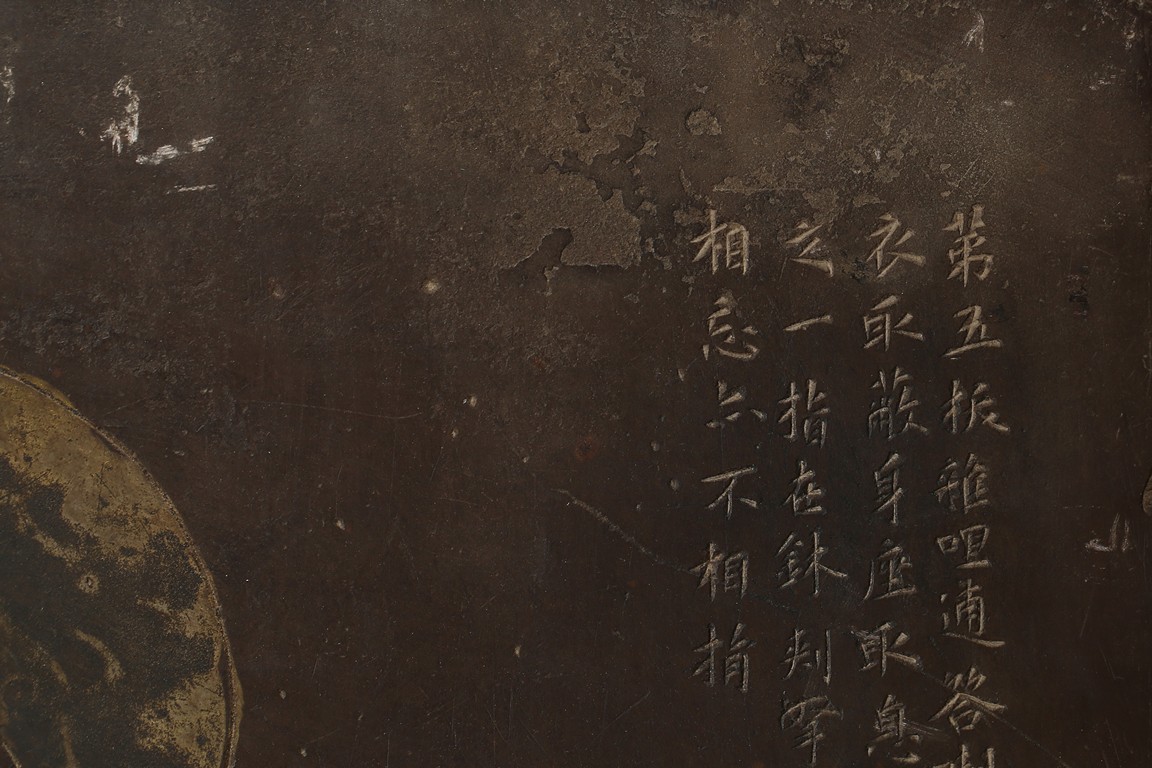 第五拔雜哩逋答
衣取蔽身座取息
一指在鉢
相忘亦不相指